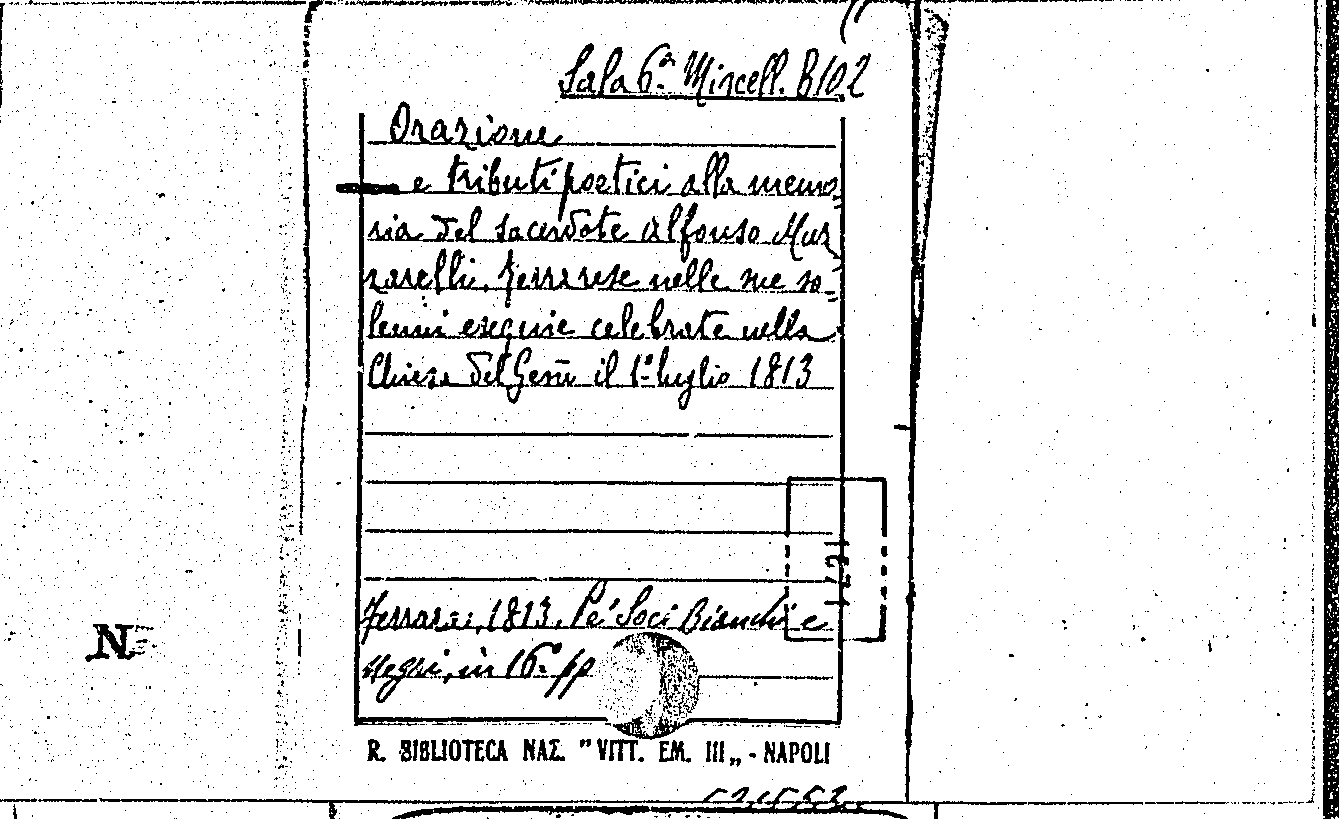 Sala 6ª Miscell. B102
Orazione
e tributi poetici alla memo,
ria del sacerdote Alfonso Muz,
zarelli, Ferrarese nelle sue so-
lenni esequie celebrate nella
Chiesa del Gesù il 1° luglio 1813
Ferrara, 1813. Pe' Soci Bianchi e
Negri, in 16° pp
N
R. BIBLIOTECA NAZ. "VITT. EM. III„ - NAPOLI